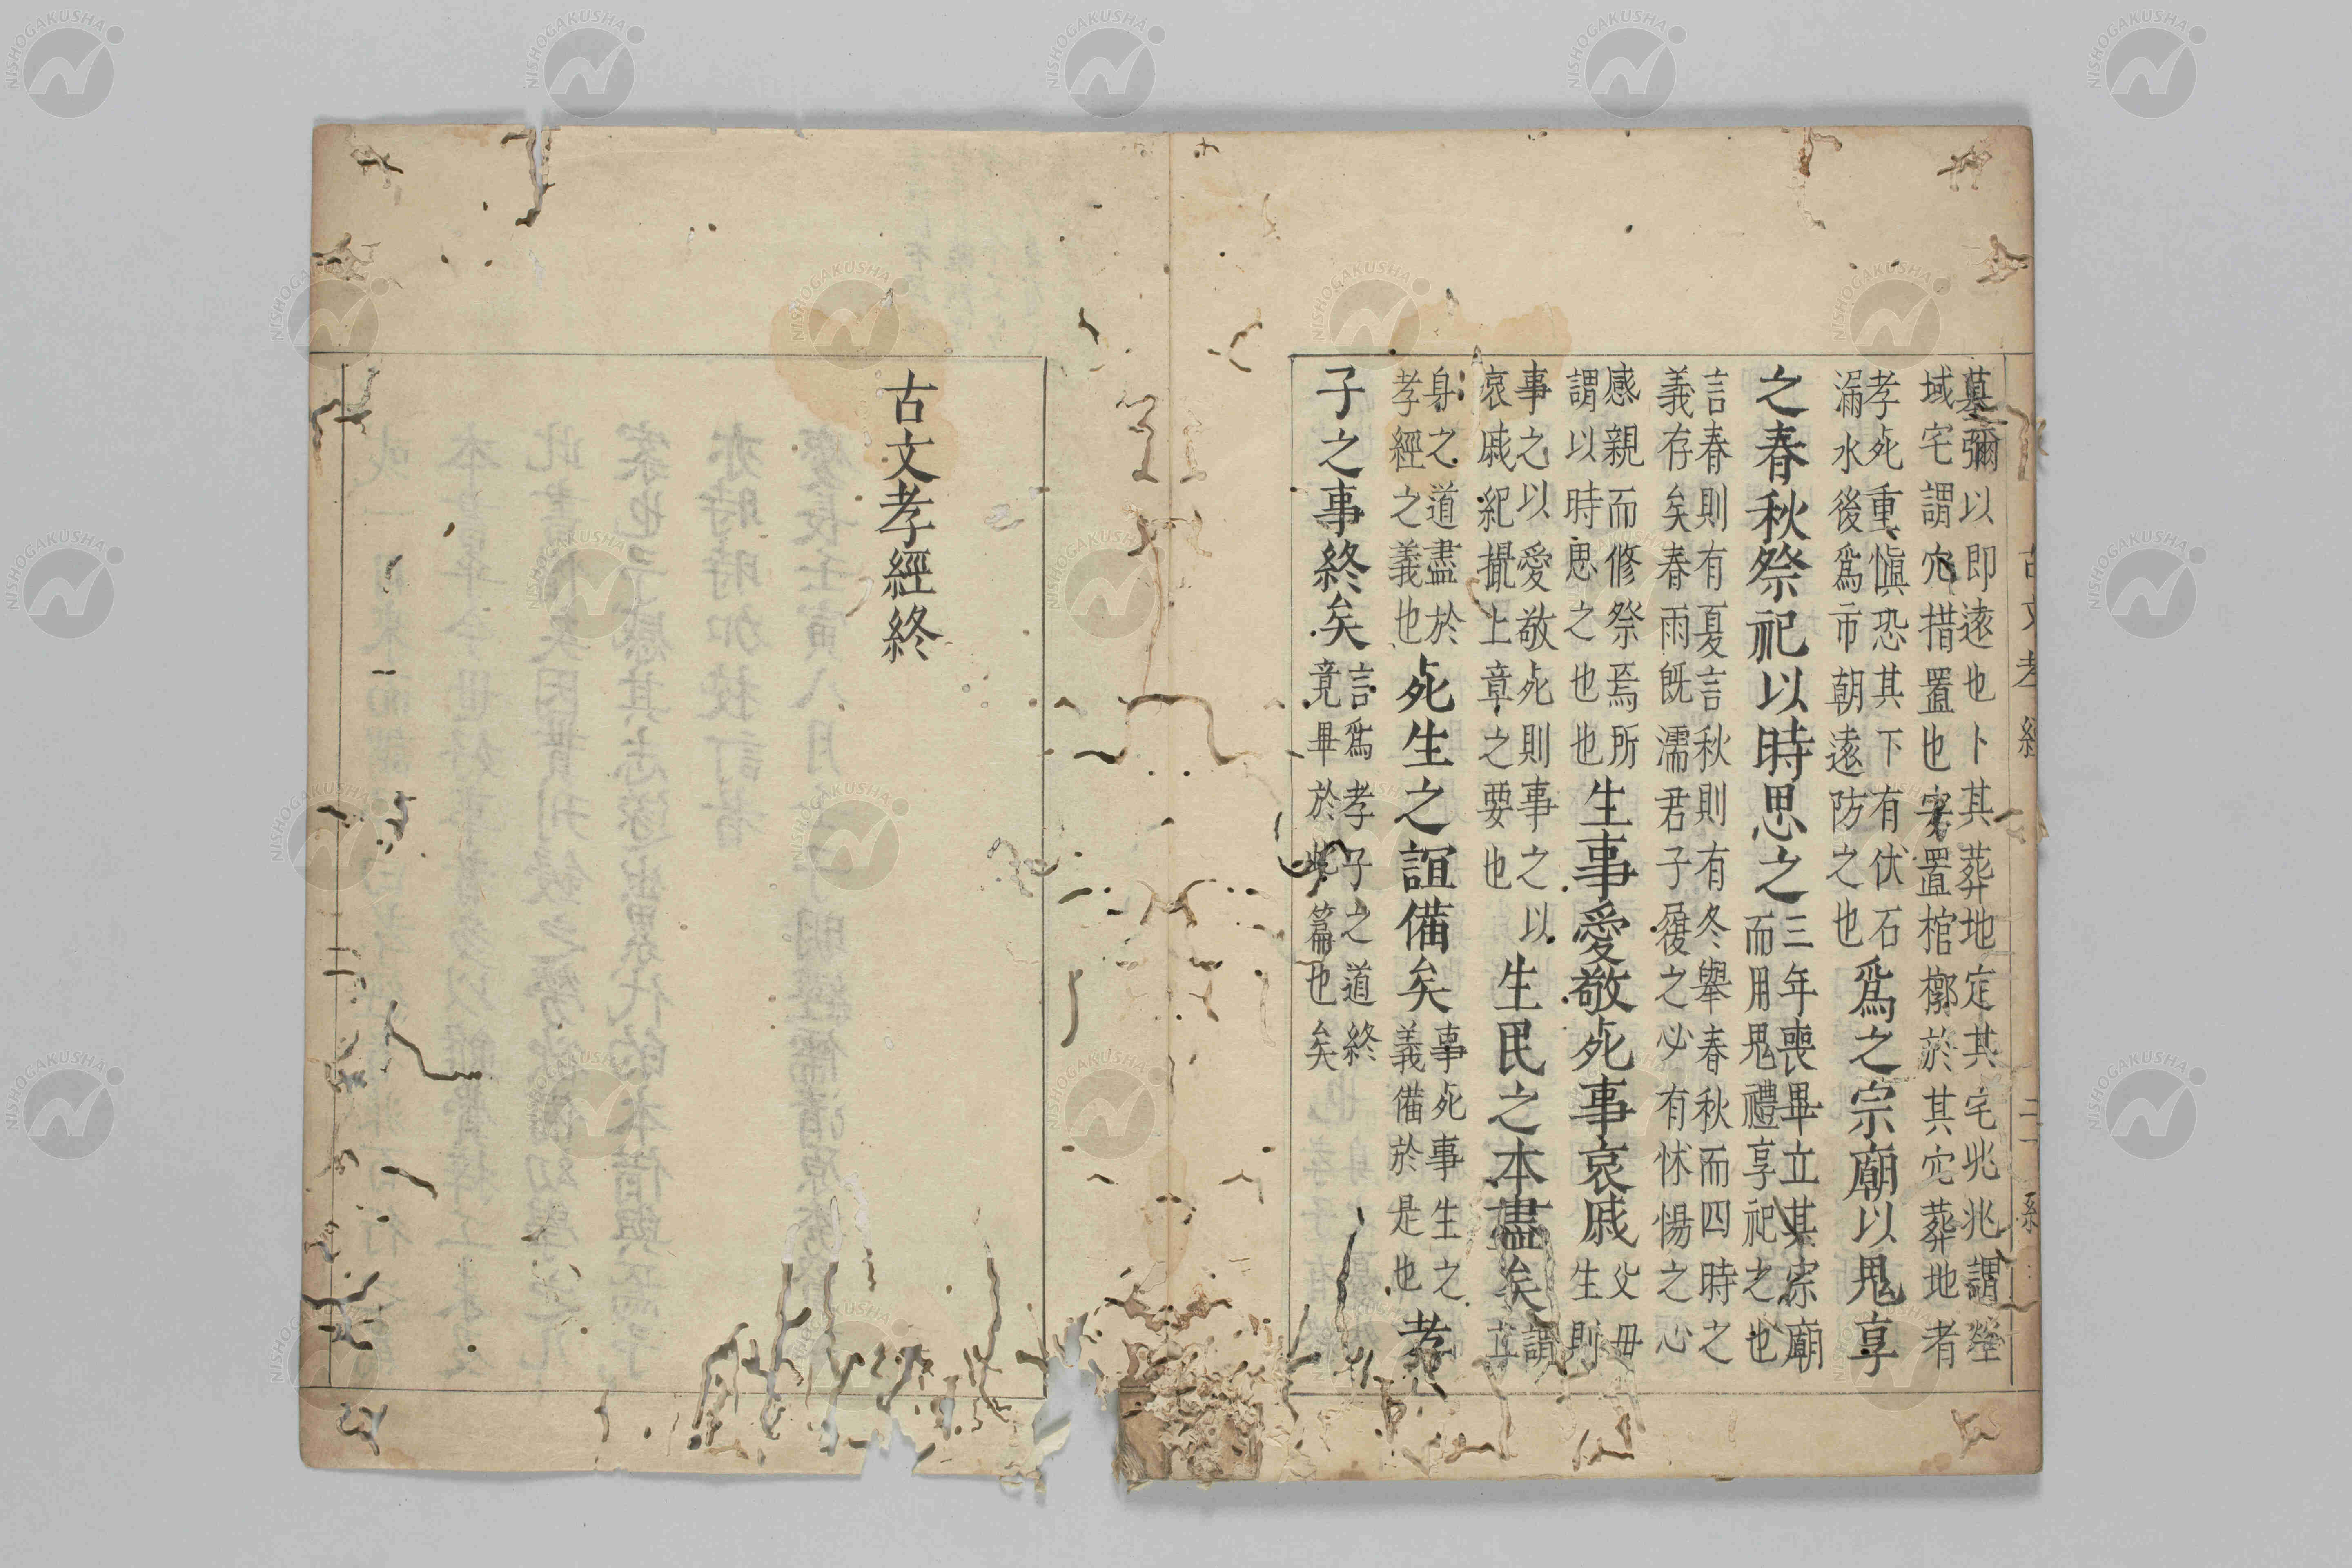 墓彌以即遠也卜其葬地定其宅兆兆謂塋
域宅謂穴措置也安置棺槨於其宅葬地者
孝死重愼恐其下有伏石
漏水後爲市朝遠防之也
爲之宗廟以鬼享
之春秋祭祀以時思之
三年喪畢立其宗廟
而用鬼禮享祀之也
言春則有夏言秋則有冬舉春秋而四時之
義存矣春雨旣濡君子履之必有怵惕之心
感親而修祭焉所
謂以時思之也也
生事愛敬死事哀戚
父毋
生則
事之以愛敬死則事之以
哀戚紀撮上章之要也
生民之本盡矣
謂
立
身之道盡於
孝經之義也
死生之誼備矣
事死事生之
義備於是也
孝
子之事終矣
言爲孝子之道終
竟畢於此篇也矣
古文孝經終